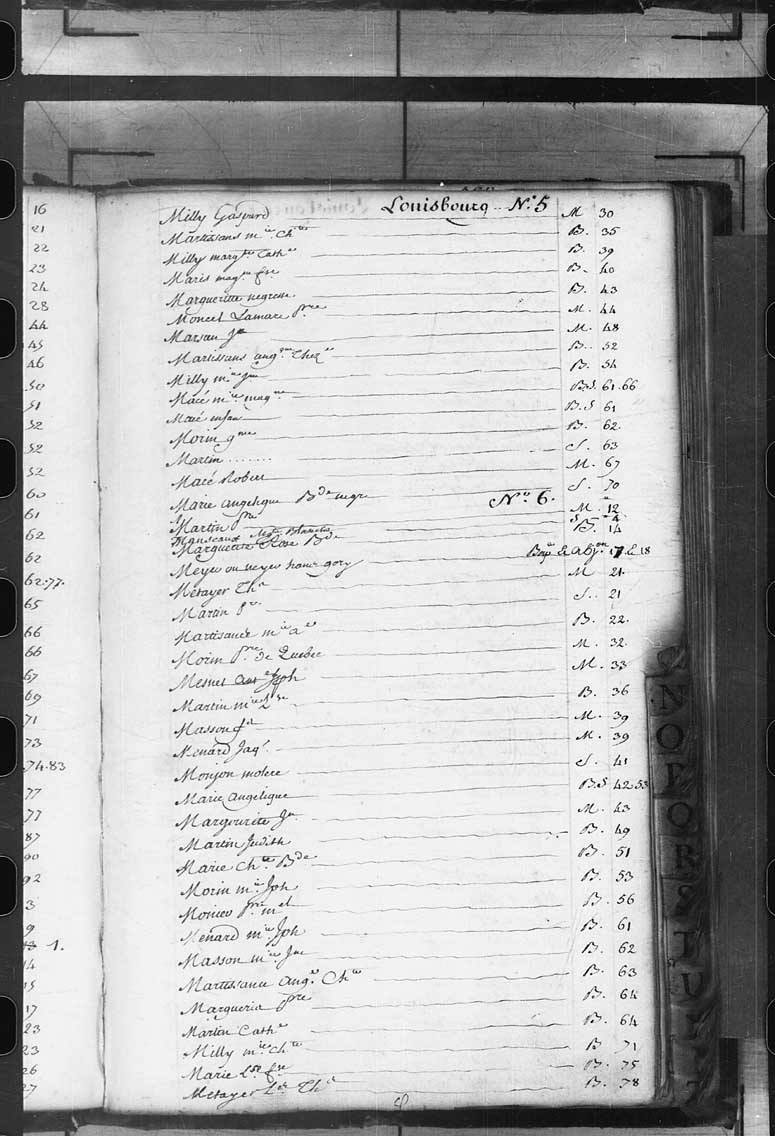 Louisbourg N.º 5
Milly Gaspard M 30
Martissans m.ie Ch.te B. 35
Milly marg.te Cath.e B. 39
Maris mag.ne fse B. 40
Marguerite negresse B. 43
Moncel Lamare p.re M. 44
Marsan J.n M. 48
Martissans ang.que B. 52
Milly m.ie J.ne B. 54
Macé m.ie mag.ne B S. 61. 66
Macé enfan B. S 61
Morin g.me B. 62
Martin ........ S. 63
Macé Robert M. 67
Marie angelique B.de negr S. 70
N.º 6.
Martin p.re M. 12
S 4
Marguerite Rose B.de B. 14
Meyer ou neyer hanns gory Bap.e & abj.on 17 & 18
Métayer Th.s M 21.
Martin p.re S. 21
Martisance m.ie B. 22.
Morin p.re de Quebec M. 32.
Mesnet Jph M. 33
Martin m.ie L.se B. 36
Masson M. 39
Menard Jaq.s M. 39
Monjon molere S. 41
Marie Angelique B S 42. 53
Margouritte J.n M. 43
Martin Judith B. 49
Marie Ch.te B.de B. 51
Morin m.ie Jph B. 53
Monier p.re m.el B. 56
Menard m.ie Jph B. 61
Masson m.ie J.ne B. 62
Martissance Ang.e Ch.te B. 63
Margueria p.re B. 64
Martin Cath.e B. 64
Milly m.ie Ch.te B 71
Marie L.se fse B. 75
Metayer L.s Th.s B. 78
16
21
22
23
24
28
44
45
46
50
51
52
52
52
60
61
62
62
62. 77.
65
66
66
67
69
71
73
74. 83
77
77
87
90
92
3
9
1.
14
15
17
23
23
26
27
N
O
P
Q
R
S
T
U